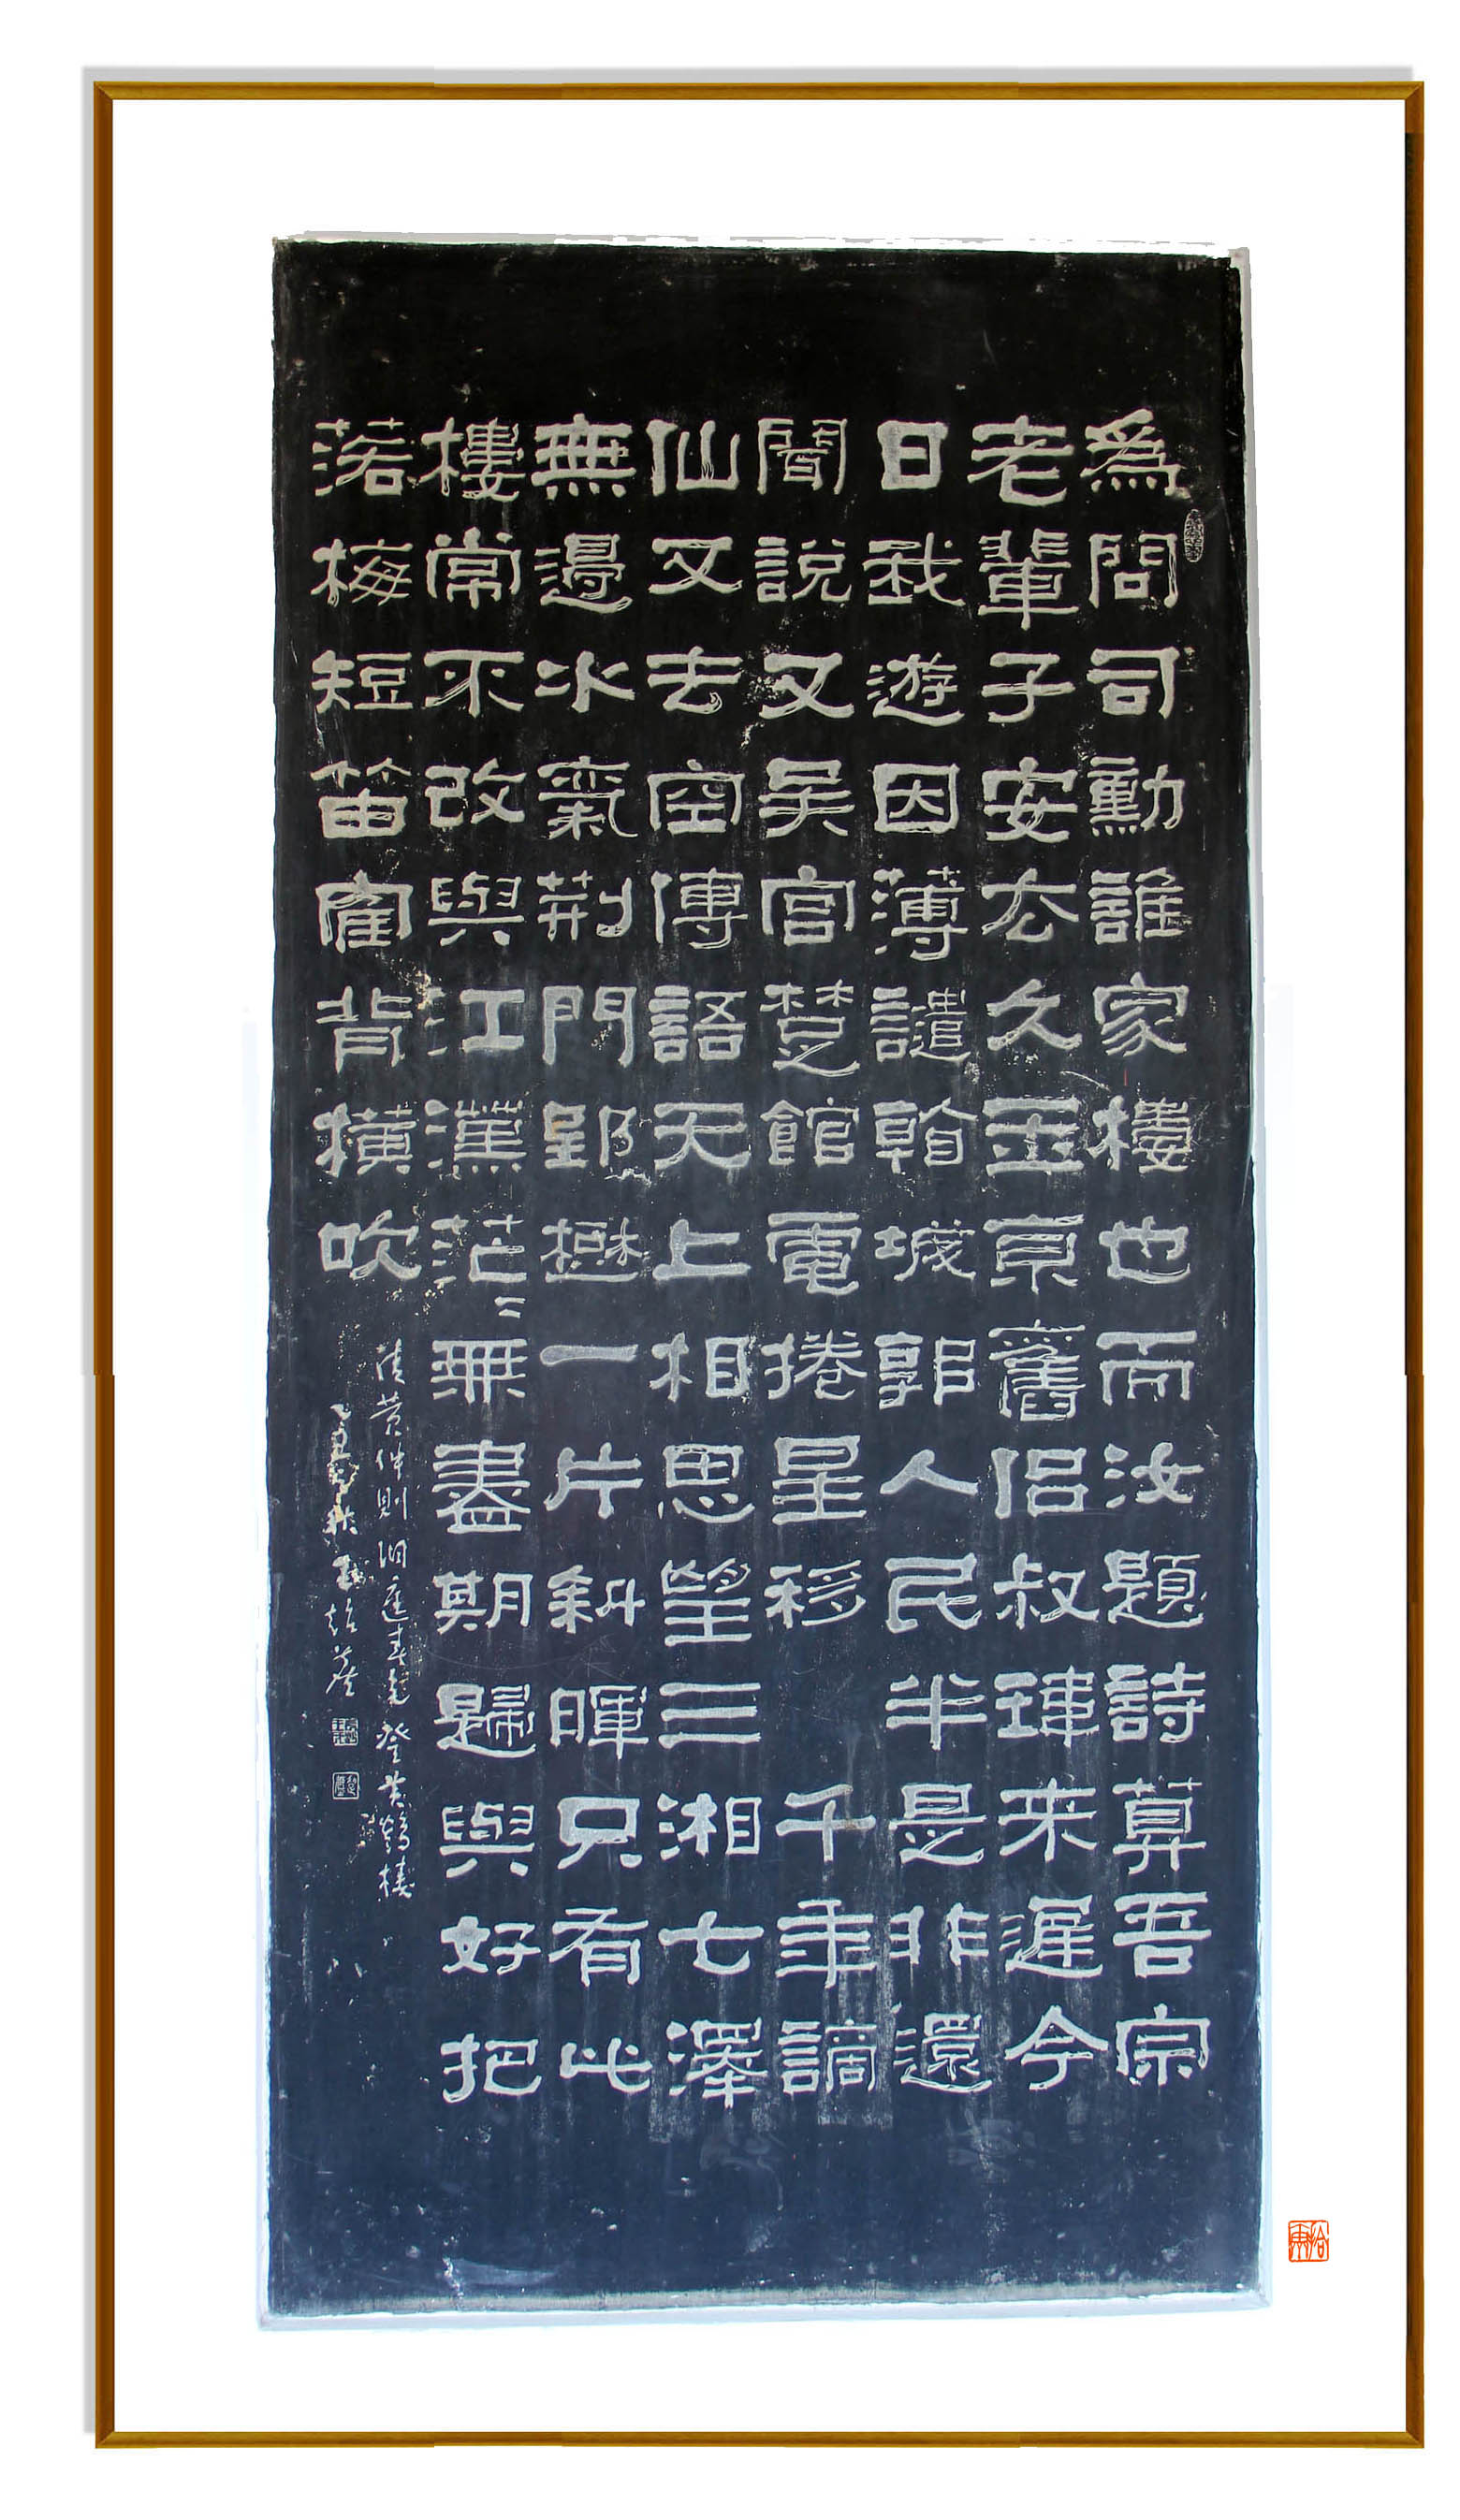 爲問司勳誰家樓也而汝題詩算吾宗
老輩子安去久玉京舊侶叔瑋来遲今
日我遊因薄譴城郭人民半是非還
聞說又吳宮楚館電捲星移千年謫
仙又去空傳語天上相思望三湘七澤
無邊水氣荊門郢樾一片斜暉只有此
樓常不改與江漢茫〻無盡期歸與好把
落梅短笛寉背橫吹
清黄仲則洞庭春色登黄鶴樓